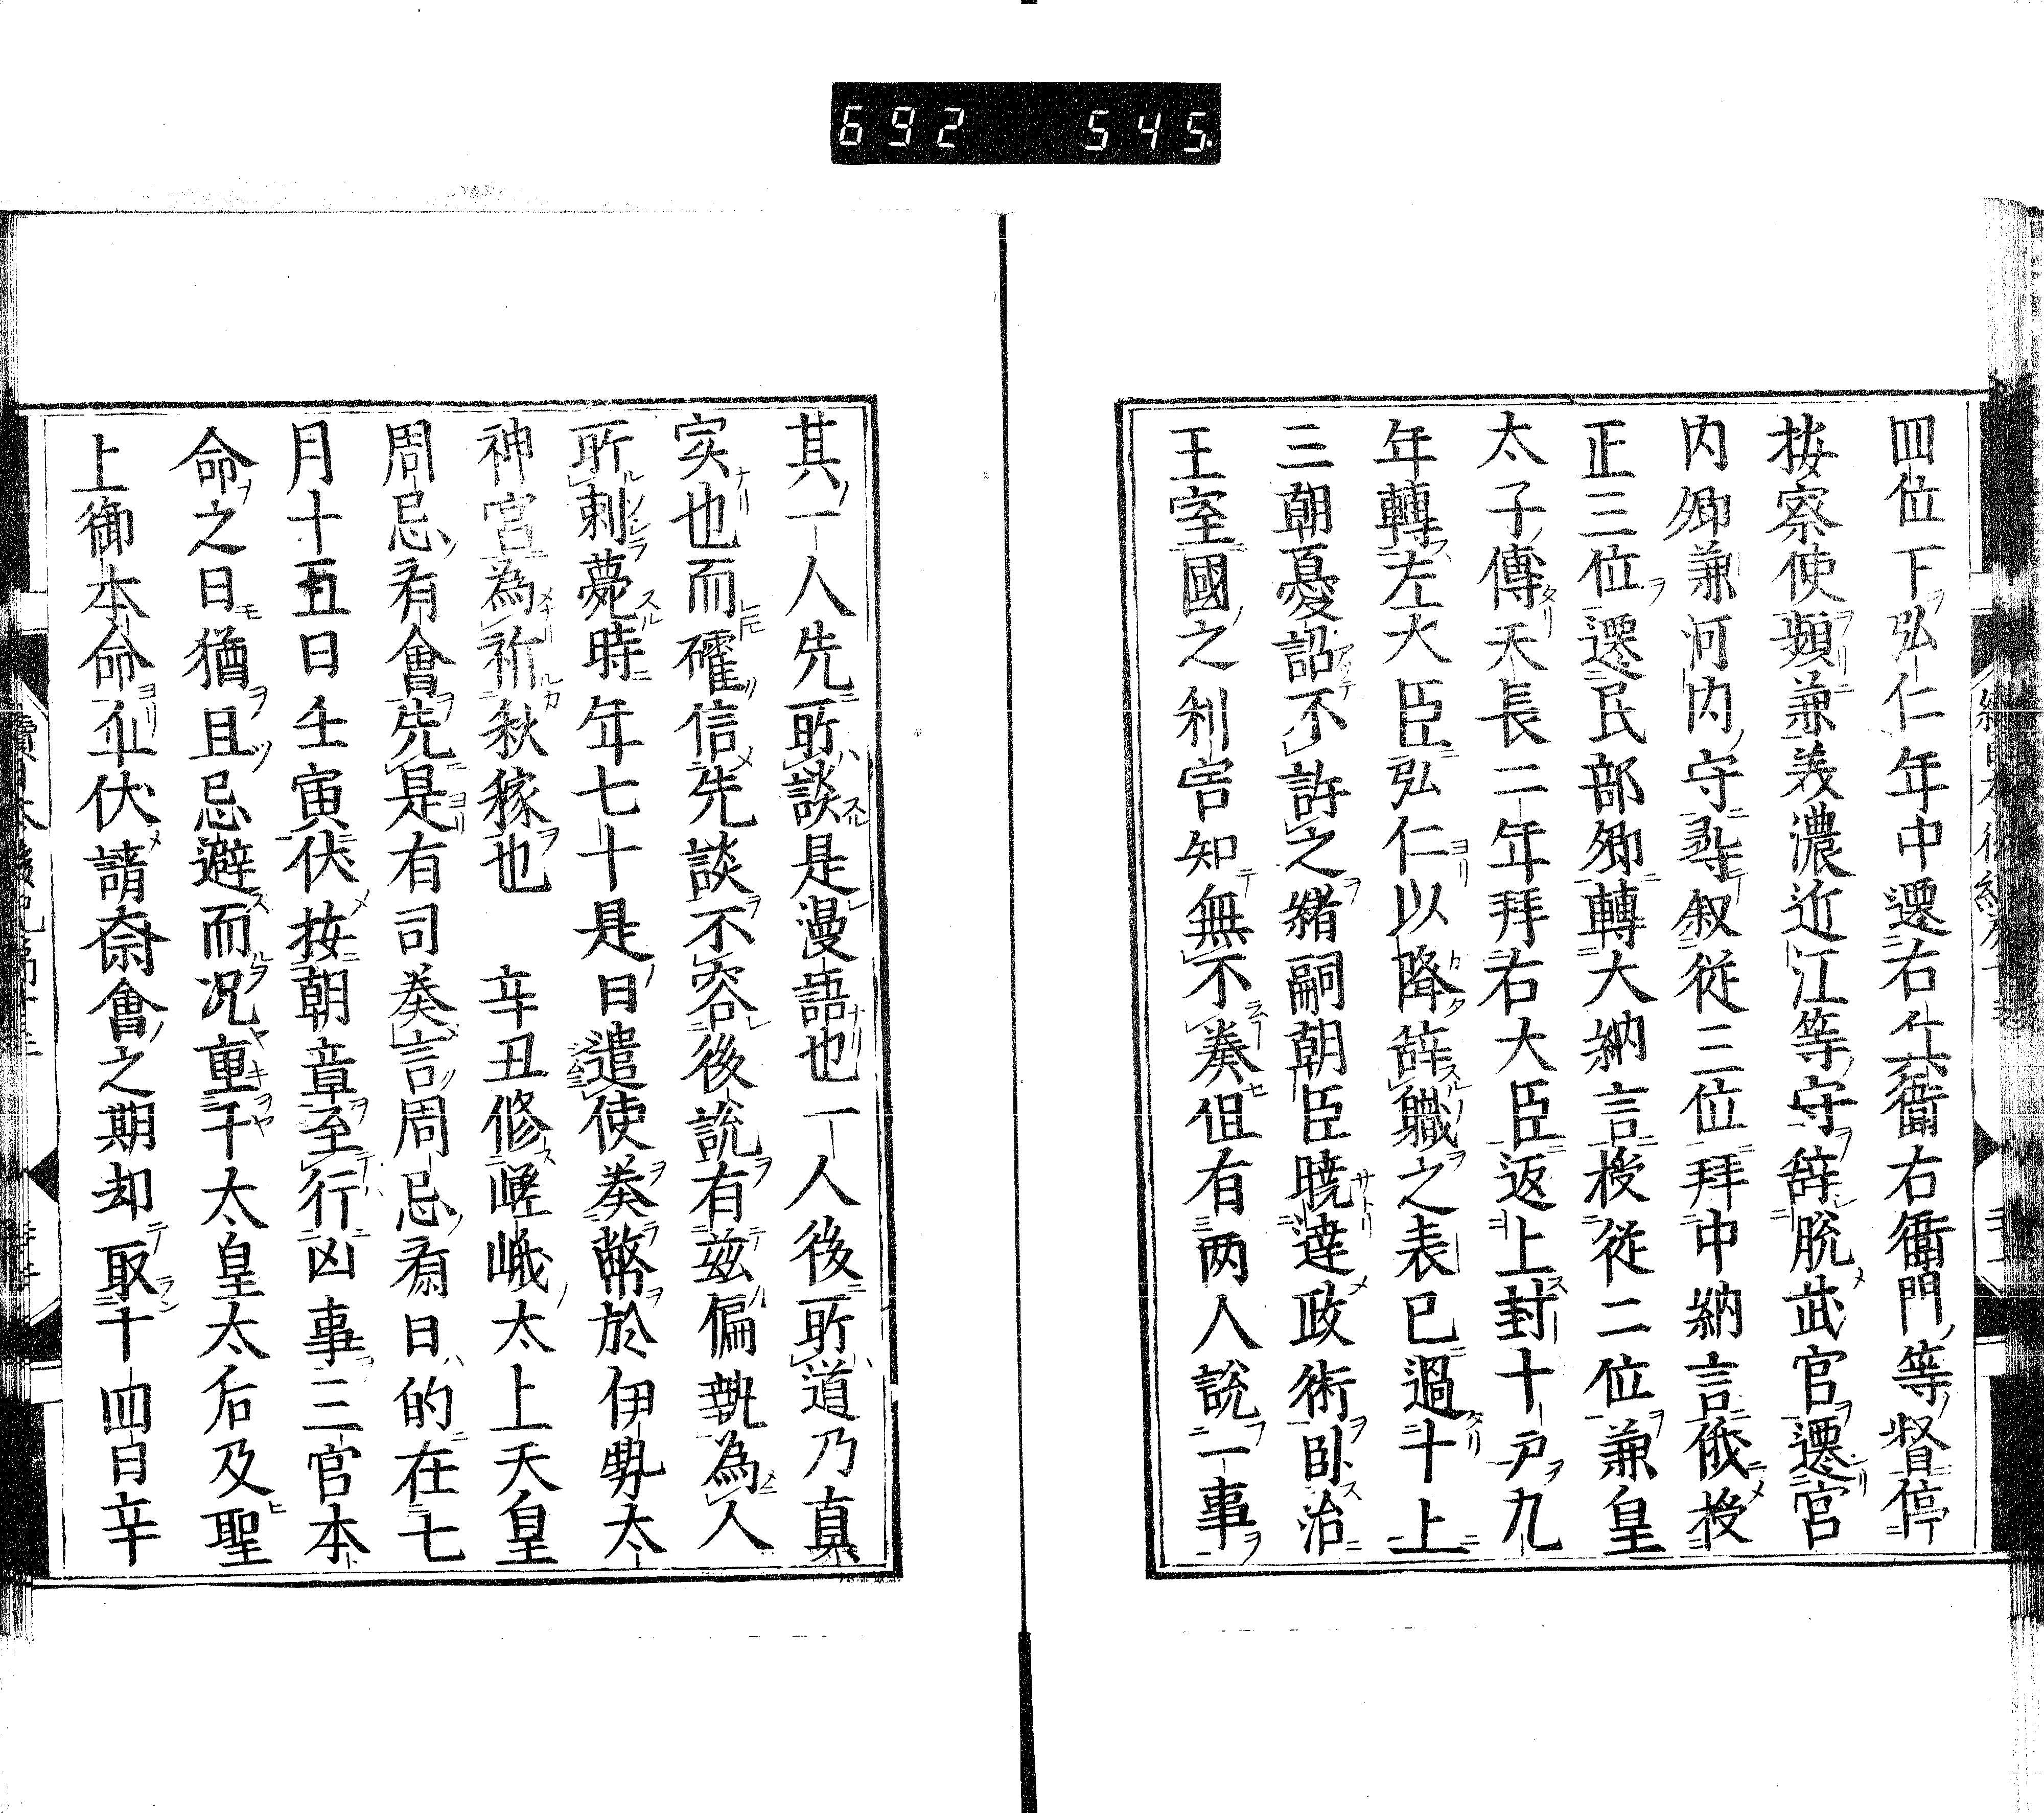 692 545
四位下弘仁年中遷右兵衛右衛門等督停
按察使頻兼美濃近江等守辞脱武官遷宮
内卿兼河内守尋叙従三位拜中納言俄授
正三位遷民部卿轉大納言授従二位兼皇
太子傳天長二年拜右大臣返上封十戸九
年轉左大臣弘仁以降辞職之表已過十上
三朝憂詔不許之緒嗣朝臣暁達政術臥治
王室國之利害知無不奏但有两人説一事
其一人先所談是漫語也一人後所道乃真
实也而確信先談不容後説有茲偏執為人
所刺薨時年七十是日遣使奏幣於伊勢太
神宮為祈秋稼也 辛丑修嵯峨太上天皇
周忌斎會先是有司奏言周忌斎日的在七
月十五日壬寅伏按朝章至行凶事三官本
命之日猶且忌避而况重于太皇太后及聖
上御本命乎伏請斎會之期却取十四日辛